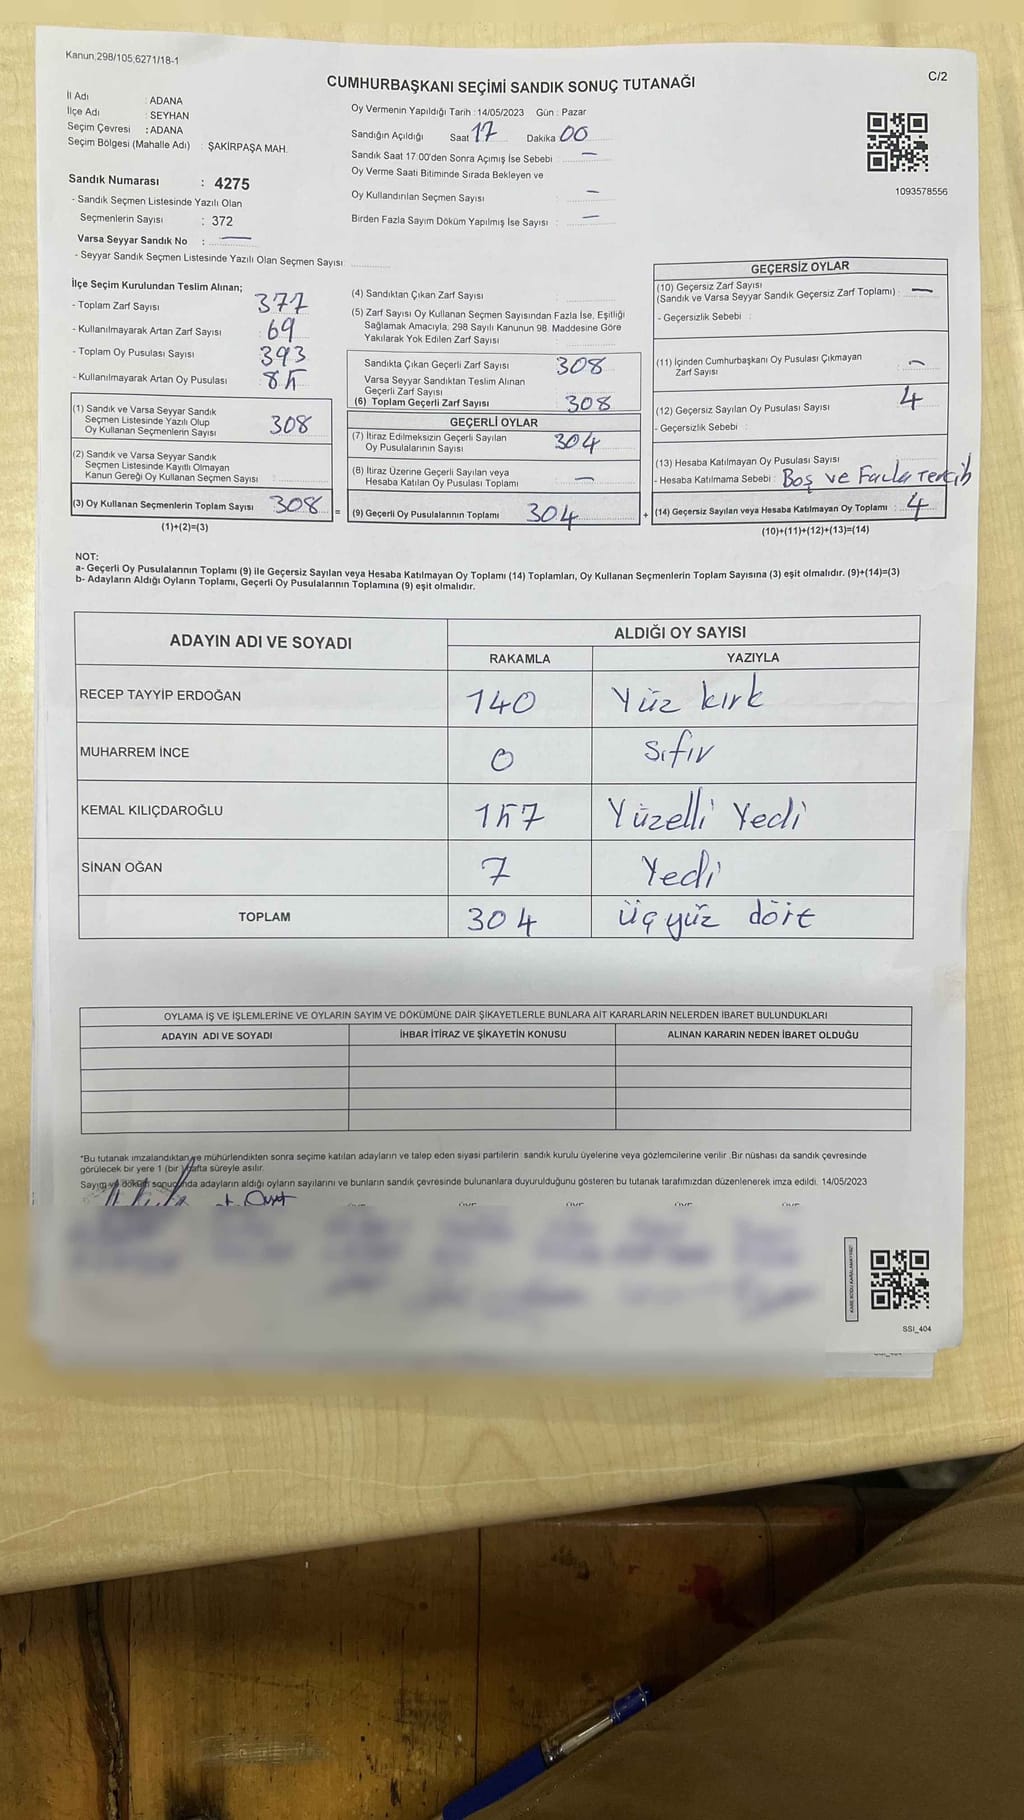 Kanun:298/105,6271/18-1
C/2
CUMHURBAŞKANI SEÇİMİ SANDIK SONUÇ TUTANAĞI
İl Adı : ADANA
İlçe Adı : SEYHAN
Seçim Çevresi : ADANA
Seçim Bölgesi (Mahalle Adı) : ŞAKİRPAŞA MAH.
Sandık Numarası : 4275
- Sandık Seçmen Listesinde Yazılı Olan
Seçmenlerin Sayısı : 372
Varsa Seyyar Sandık No : —
- Seyyar Sandık Seçmen Listesinde Yazılı Olan Seçmen Sayısı:
Oy Vermenin Yapıldığı Tarih : 14/05/2023 Gün : Pazar
Sandığın Açıldığı Saat 17 Dakika 00
Sandık Saat 17:00'den Sonra Açımış İse Sebebi : —
Oy Verme Saati Bitiminde Sırada Bekleyen ve
Oy Kullandırılan Seçmen Sayısı : —
Birden Fazla Sayım Döküm Yapılmış İse Sayısı : —
1093578556
İlçe Seçim Kurulundan Teslim Alınan;
- Toplam Zarf Sayısı : 377
- Kullanılmayarak Artan Zarf Sayısı : 69
- Toplam Oy Pusulası Sayısı : 393
- Kullanılmayarak Artan Oy Pusulası : 85
(1) Sandık ve Varsa Seyyar Sandık
Seçmen Listesinde Yazılı Olup
Oy Kullanan Seçmenlerin Sayısı : 308
(2) Sandık ve Varsa Seyyar Sandık
Seçmen Listesinde Kayıtlı Olmayan
Kanun Gereği Oy Kullanan Seçmen Sayısı :
(3) Oy Kullanan Seçmenlerin Toplam Sayısı : 308
(1)+(2)=(3)
=
(4) Sandıktan Çıkan Zarf Sayısı :
(5) Zarf Sayısı Oy Kullanan Seçmen Sayısından Fazla İse, Eşitliği
Sağlamak Amacıyla, 298 Sayılı Kanunun 98. Maddesine Göre
Yakılarak Yok Edilen Zarf Sayısı :
Sandıkta Çıkan Geçerli Zarf Sayısı : 308
Varsa Seyyar Sandıktan Teslim Alınan
Geçerli Zarf Sayısı
(6) Toplam Geçerli Zarf Sayısı : 308
GEÇERLİ OYLAR
(7) İtiraz Edilmeksizin Geçerli Sayılan
Oy Pusulalarının Sayısı : 304
(8) İtiraz Üzerine Geçerli Sayılan veya
Hesaba Katılan Oy Pusulası Toplamı : —
(9) Geçerli Oy Pusulalarının Toplamı 304
+
GEÇERSİZ OYLAR
(10) Geçersiz Zarf Sayısı
(Sandık ve Varsa Seyyar Sandık Geçersiz Zarf Toplamı) : —
- Geçersizlik Sebebi :
(11) İçinden Cumhurbaşkanı Oy Pusulası Çıkmayan
Zarf Sayısı : —
(12) Geçersiz Sayılan Oy Pusulası Sayısı : 4
- Geçersizlik Sebebi :
(13) Hesaba Katılmayan Oy Pusulası Sayısı :
- Hesaba Katılmama Sebebi : Boş ve Fazla Tercih
(14) Geçersiz Sayılan veya Hesaba Katılmayan Oy Toplamı : 4
(10)+(11)+(12)+(13)=(14)
NOT:
a- Geçerli Oy Pusulalarının Toplamı (9) ile Geçersiz Sayılan veya Hesaba Katılmayan Oy Toplamı (14) Toplamları, Oy Kullanan Seçmenlerin Toplam Sayısına (3) eşit olmalıdır. (9)+(14)=(3)
b- Adayların Aldığı Oyların Toplamı, Geçerli Oy Pusulalarının Toplamına (9) eşit olmalıdır.
ADAYIN ADI VE SOYADI
ALDIĞI OY SAYISI
RAKAMLA YAZIYLA
RECEP TAYYİP ERDOĞAN 140 Yüz kırk
MUHARREM İNCE 0 Sıfır
KEMAL KILIÇDAROĞLU 157 Yüzelli Yedi
SİNAN OĞAN 7 Yedi
TOPLAM 304 üçyüz dört
OYLAMA İŞ VE İŞLEMLERİNE VE OYLARIN SAYIM VE DÖKÜMÜNE DAİR ŞİKAYETLERLE BUNLARA AİT KARARLARIN NELERDEN İBARET BULUNDUKLARI
ADAYIN ADI VE SOYADI İHBAR İTİRAZ VE ŞİKAYETİN KONUSU ALINAN KARARIN NEDEN İBARET OLDUĞU
*Bu tutanak imzalandıktan ve mühürlendikten sonra seçime katılan adayların ve talep eden siyasi partilerin sandık kurulu üyelerine veya gözlemcilerine verilir. Bir nüshası da sandık çevresinde
görülecek bir yere 1 (bir) hafta süreyle asılır.
Sayım ve döküm sonucunda adayların aldığı oyların sayılarını ve bunların sandık çevresinde bulunanlara duyurulduğunu gösteren bu tutanak tarafımızdan düzenlenerek imza edildi. 14/05/2023
SSI_404